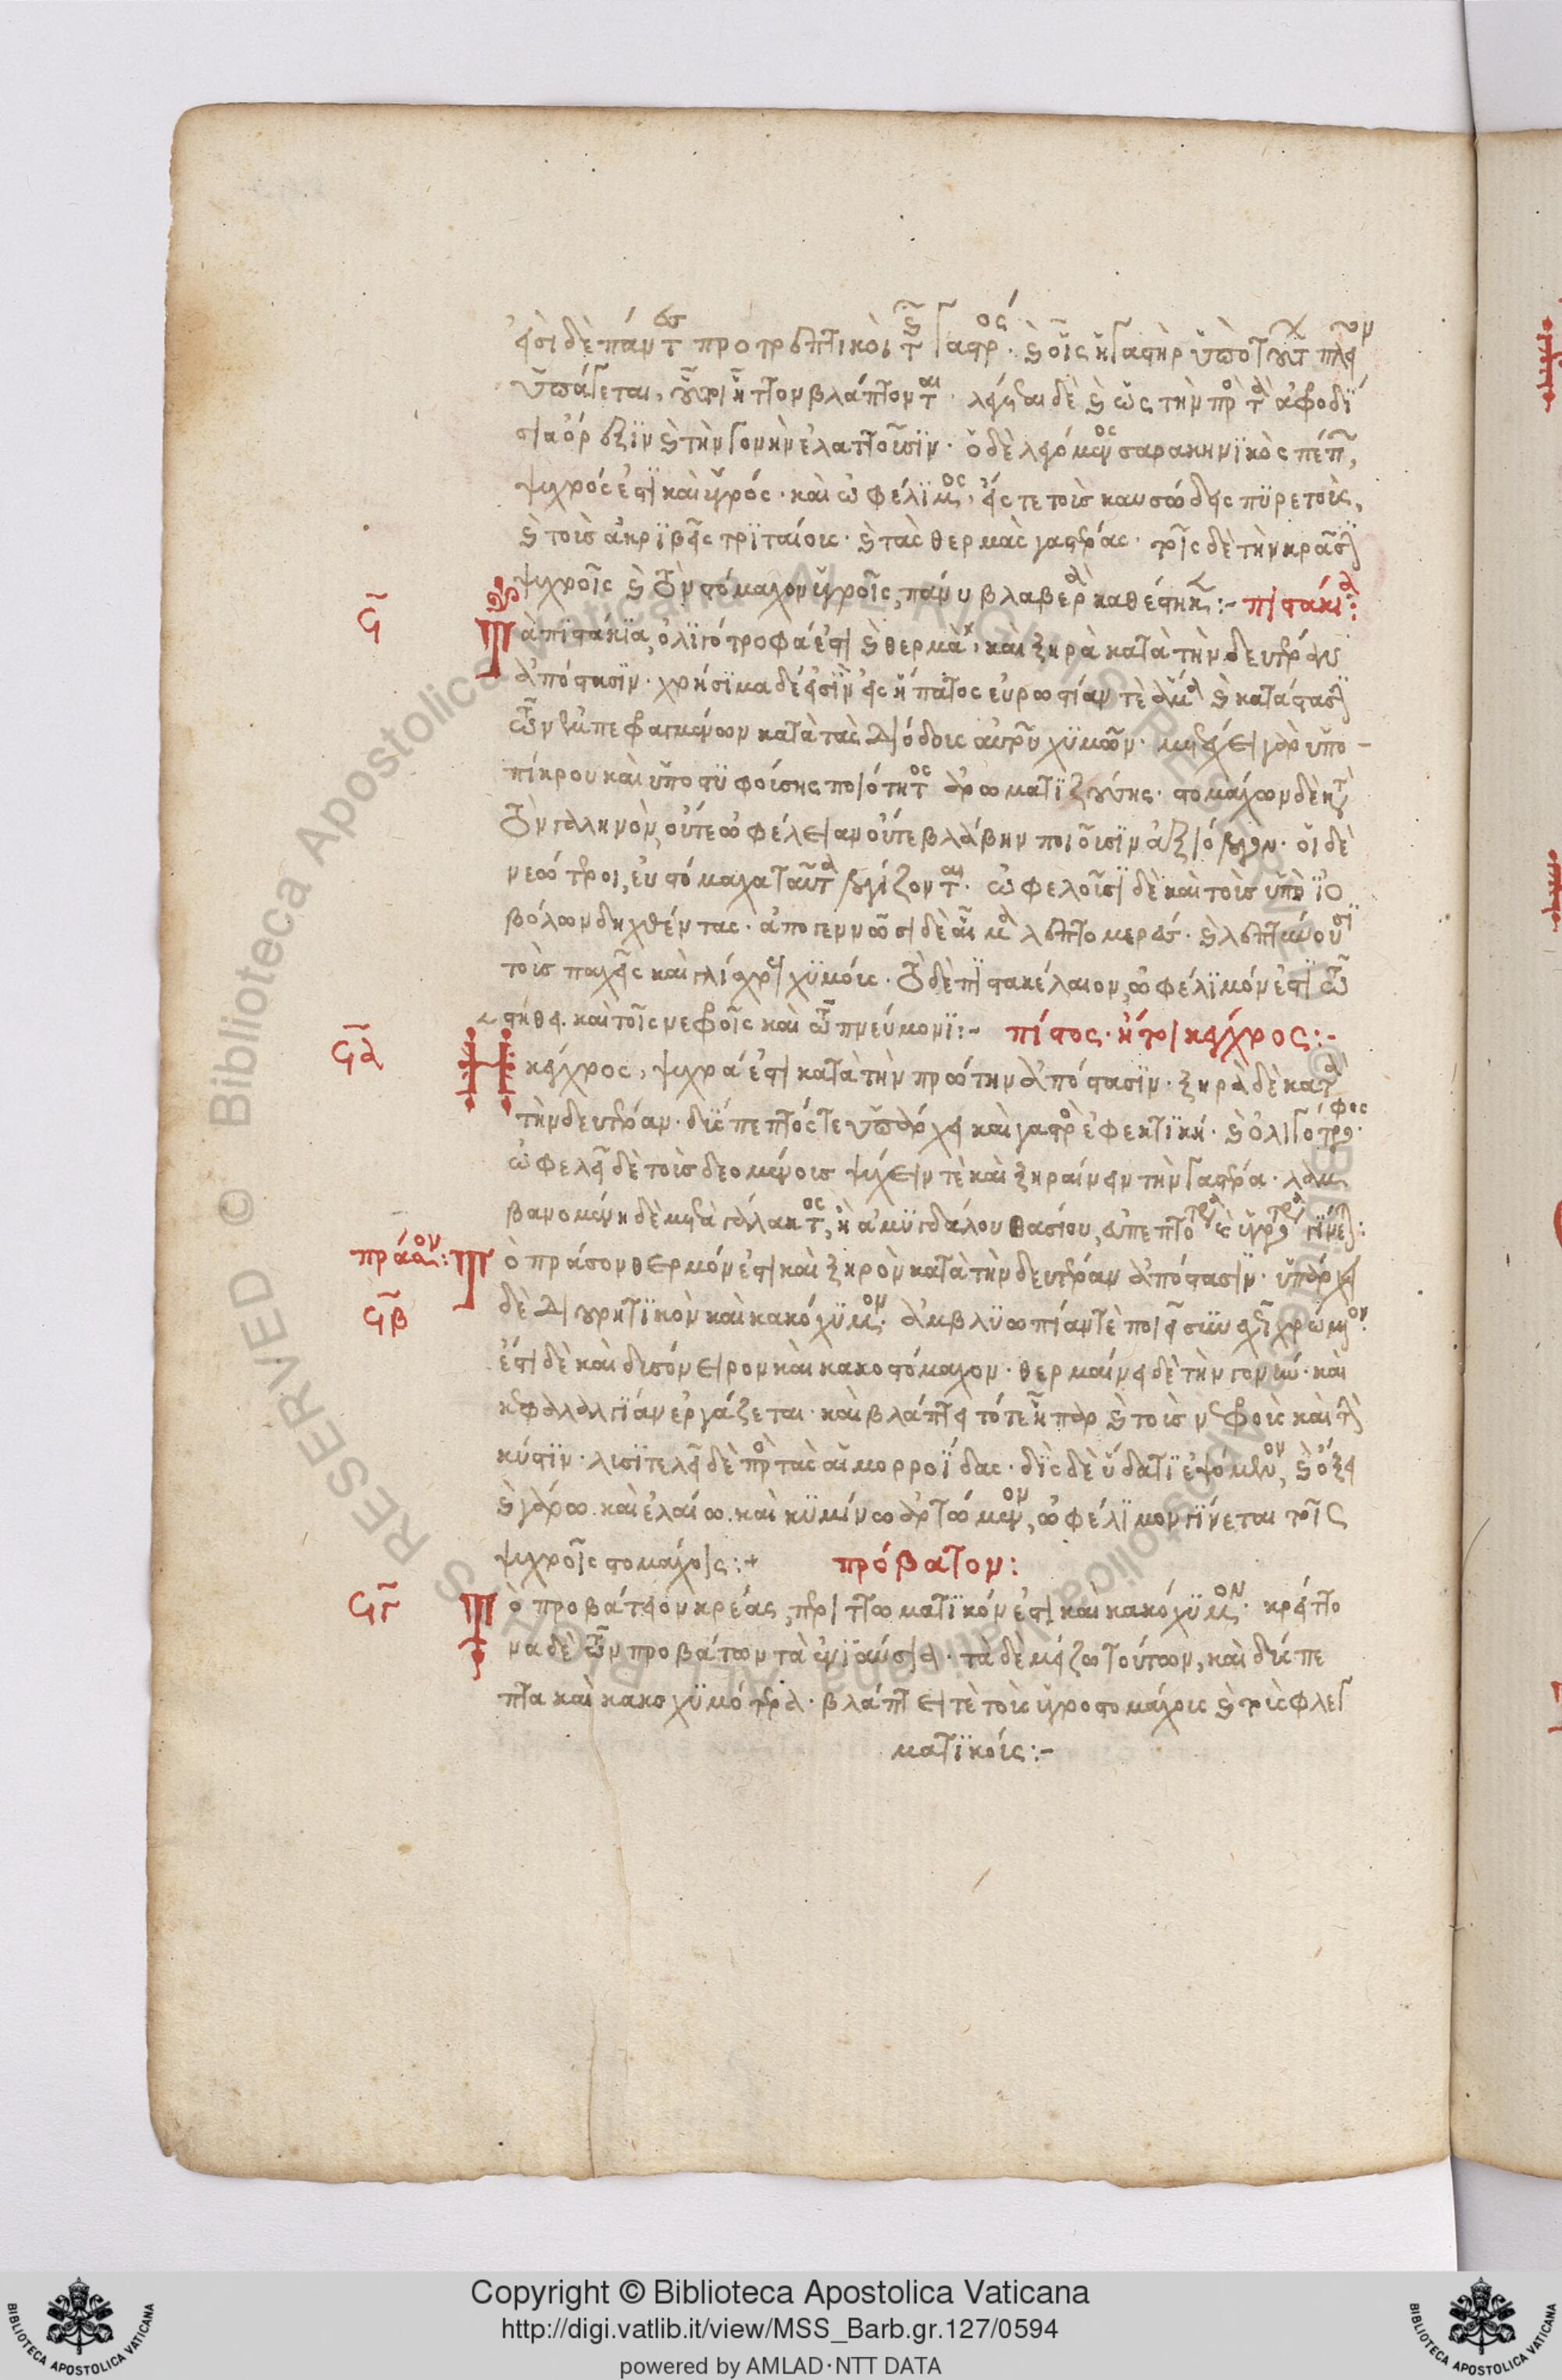 εἰσὶ δὲ πάντες προτρεπτικοὶ τῆς γαστρός· καὶ οἷς ἡ γαστὴρ ὑπὸ τούτων πλεῖον
ὑπάγεται, οὗτοι ἧττον βλάπτονται· λέγεται δὲ καὶ ὡς τὴν πρὸς τὰ ἀφροδί
σια ὄρεξιν καὶ τὴν γονὴν ἐλαττοῦσιν· ὁ δὲ λεγόμενος σαρακηνικὸς πέπων,
ψυχρός ἐστι καὶ ὑγρός· καὶ ὠφέλιμος, ἔς τε τοῖς καυσώδεις πυρετοῖς,
καὶ τοῖς ἀκριβεῖς τριταίοις· καὶ τὰς θερμὰς γαστέρας· τοῖς δὲ τὴν κράσιν
ψυχροῖς καὶ τὸν στόμαχον ὑγροῖς, πάνυ βλαβερὰ καθέστηκε:- πιστάκια:
ϟ Τὰ πιστάκια, ὀλιγότροφά ἐστι καὶ θερμὰ, καὶ ξηρὰ κατὰ τὴν δευτέραν
ἀπόστασιν· χρήσιμα δέ εἰσιν εἰς ἥπατος εὐρωστίαν τὲ ἅμα καὶ κατάστασιν
τῶν ἐμπεφραγμένων κατὰ τὰς διόδοις αὐτοῦ χυμῶν· μετέχει γὰρ ὑπο-
πίκρου καὶ ὑποστυφοίσης ποιότητος ἀρωματιζούσης· στομάχων δὲ κατὰ
τὸν γαληνὸν, οὔτε ὠφέλειαν οὔτε βλάβην ποιοῦσιν ἀξιόλογον· οἱ δὲ
νεώτεροι, εὐστόμαχα ταῦτα λογίζονται· ὠφελοῦσι δὲ καὶ τοῖς ὑπὸ ἰο
βόλων δηχθέντας· ἀπογεννῶσι δὲ αἷμα λεπτομερές· καὶ λεπτύνουσι
τοῖς παχεῖς καὶ γλίσχρους χυμοίς· τὸ δὲ πιστακέλαιον, ὠφέλιμόν ἐστι τῶ
στήθει. καὶ τοῖς νεφροῖς καὶ τῶ πνεύμονι:- πίστος· ἤτοι κέχρος:-
ϟα Ἡ κέχρος, ψυχρά ἐστι κατὰ τὴν πρώτην ἀπόστασιν· ξηρὰ δὲ κατὰ
τὴν δευτέραν· δύσπεπτός τε ὑπάρχει καὶ γαστρὸς ἐφεκτικὴ· καὶ ὀλιγότροφος·
ὠφελεῖ δὲ τοῖς δεομένοις ψύχειν τὲ καὶ ξηραίνειν τὴν γαστέρα· λαμ
βανομένη δὲ μετὰ γάλακτος, ἢ ἀμυγδάλου θασίου, εὐπεπτοτέρα καὶ ὑγροτέρα γίνεται:
πράσον: Τὸ πράσον θερμόν ἐστι καὶ ξηρὸν κατὰ τὴν δευτέραν ἀπόστασιν· ὑπάρχει
ϟβ δὲ διουρητικὸν καὶ κακόχυμον· ἀμβλυωπίαν τὲ ποιεῖ συνεχεῖ χρώμενον·
ἐστὶ δὲ καὶ δυσόνειρον καὶ κακοστόμαχον· θερμαίνει δὲ τὴν γονὴν· καὶ
κεφαλαλγίαν ἐργάζεται· καὶ βλάπτει τότε ἧπαρ καὶ τοῖς νεφροῖς καὶ τὴν
κύστιν· λυσιτελεῖ δὲ πρὸς τὰς αἱμορροΐδας· δὶς δὲ ὕδατι ἑψόμενον, καὶ ὄξει
καὶ γάρω. καὶ ἐλαίω. καὶ κυμίνω ἀρτώμενον, ὠφέλιμον γίνεται τοῖς
ψυχροῖς στομάχοις:+ πρόβατον:
ϟγ Τὸ προβάτειον κρέας, περιττωματικόν ἐστι καὶ κακόχυμον· κρείττο
να δὲ τῶν προβάτων τὰ ἐνιαύσια· τὰ δὲ μείζω τούτων, καὶ δύσπε
πτα καὶ κακοχυμότερα· βλάπτει τὲ τοῖς ὑγροστομάχοις καὶ τοῖς φλεγ
ματικοίς:-
Copyright © Biblioteca Apostolica Vaticana
http://digi.vatlib.it/view/MSS_Barb.gr.127/0594
powered by AMLAD·NTT DATA